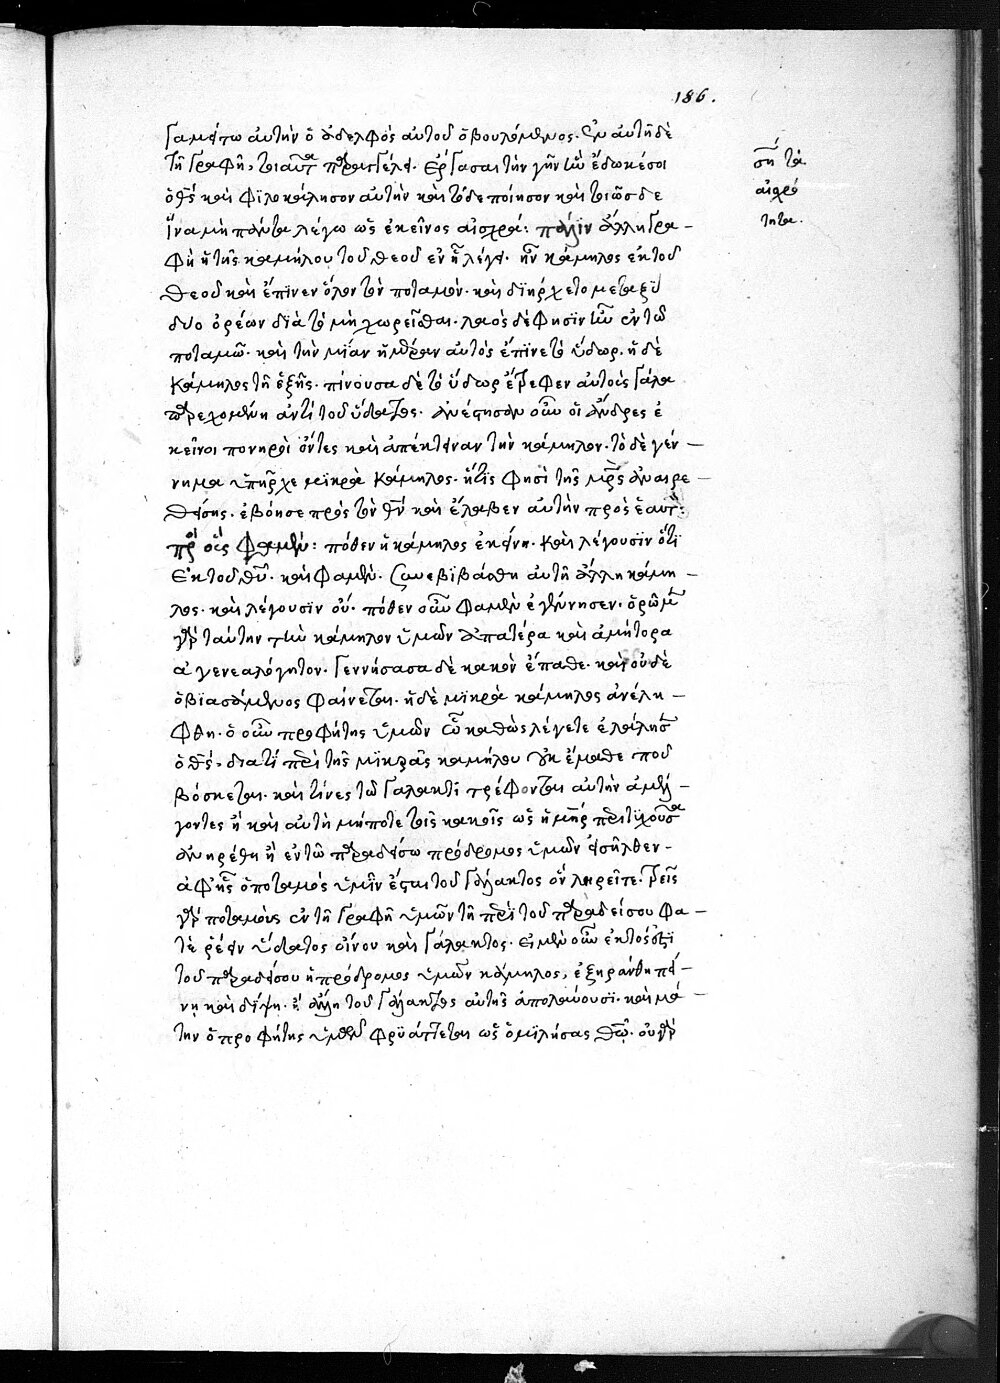 186.
γαμείτω αὐτὴν ὁ ἀδελφὸς αὐτοῦ ὁ βουλόμενος. Ἐν αὐτῇ δὲ
τῇ γραφῇ, τοιαῦτα παραγγέλει. Ἔργασαι τὴν γῆν ἣν ἔδωκέ σοι
ὁ θς καὶ φιλοκάλησον αὐτὴν καὶ τόδε ποίησον καὶ τοιῶσδε
ἵνα μὴ πάντα λέγω ὡς ἐκεῖνος αἰσχρά: πάλιν ἄλλη γρα-
φὴ ἡ τῆς καμήλου τοῦ θεοῦ ἐν ᾗ λέγει. ἦν κάμηλος ἐκ τοῦ
θεοῦ καὶ ἔπινεν ὅλον τὸν ποταμόν. καὶ διήρχετο μεταξὺ
δύο ὀρέων διὰ τὸ μὴ χωρεῖσθαι. λαὸς δὲ φησὶν ἦν ἐν τῷ
ποταμῷ. καὶ τὴν μίαν ἡμέραν αὐτὸς ἔπινε τὸ ὕδωρ. ἡ δὲ
κάμηλος τῇ ἑξῆς. πίνουσα δὲ τὸ ὕδωρ ἔτρεφεν αὐτοὺς γάλα
παρεχομένη ἀντὶ τοῦ ὕδατος. ἀνέστησαν οὖν οἱ ἄνδρες ἐ
κεῖνοι πονηροὶ ὄντες καὶ ἀπέκτειναν τὴν κάμηλον. τὸ δὲ γέν-
νημα ὑπῆρχε μικρὰ κάμηλος. ἥτις φησὶ τῆς μρς ἀναιρε-
θείσης. ἐβόησε πρὸς τὸν θν καὶ ἔλαβεν αὐτὴν πρὸς ἑαυτόν:
πρὸς οὓς φαμὲν: πόθεν ἡ κάμηλος ἐκείνη. καὶ λέγουσιν ὅτι
ἐκ τοῦ θυ. καὶ φαμέν. συνεβιβάσθη αὐτῇ ἄλλη κάμη-
λος. καὶ λέγουσιν οὔ. πόθεν οὖν φαμὲν ἐγέννησεν. ὁρῶμεν
γὰρ ταύτην τὴν κάμηλον ὑμῶν ἀπατέρα καὶ ἀμήτορα
ἀγενεαλόγητον. γεννήσασα δὲ κακὸν ἔπαθε. καὶ οὐδὲ
ὁ βιασάμενος φαίνεται. ἡ δὲ μικρὰ κάμηλος ἀνελή-
φθη. ὁ οὖν προφήτης ὑμῶν ᾧ καθὼς λέγετε ἐλάλησεν
ὁ θς, διατί περὶ τῆς μικρᾶς καμήλου οὐκ ἔμαθε ποῦ
βόσκεται. καὶ τίνες τῷ γάλακτι τρέφονται αὐτὴν ἀμέλ-
γοντες ἢ καὶ αὐτὴ μήποτε τοῖς κακοῖς ὡς ἡ μηρ περιτυχοῦσα
ἀνηρέθη ἢ ἐν τῷ παραδείσω πρόδρομος ὑμῶν εἰσῆλθεν-
ἀφ' ἧς ὁ ποταμὸς ὑμῖν ἔσται τοῦ γάλακτος ὃν ληρεῖτε. τρεῖς
γὰρ ποταμοὺς ἐν τῇ γραφῇ ὑμῶν τῇ περὶ τοῦ παραδείσου φα-
τὲ ῥέειν ὕδατος οἴνου καὶ γάλακτος. εἰ μὲν οὖν ἐκτός ἐστι
τοῦ παραδείσου ἡ πρόδρομος ὑμῶν κάμηλος, ἐξηράνθη πεί-
νη καὶ δίψη. ἢ ἄλλοι τοῦ γάλακτος αὐτῆς ἀπολαύουσι. καὶ μά-
την ὁ προφήτης ὑμῶν φρυάττεται ὡς ὁμιλήσας θῶ. οὐ γὰρ
ση τὰ
αἰσχρό
τητα.